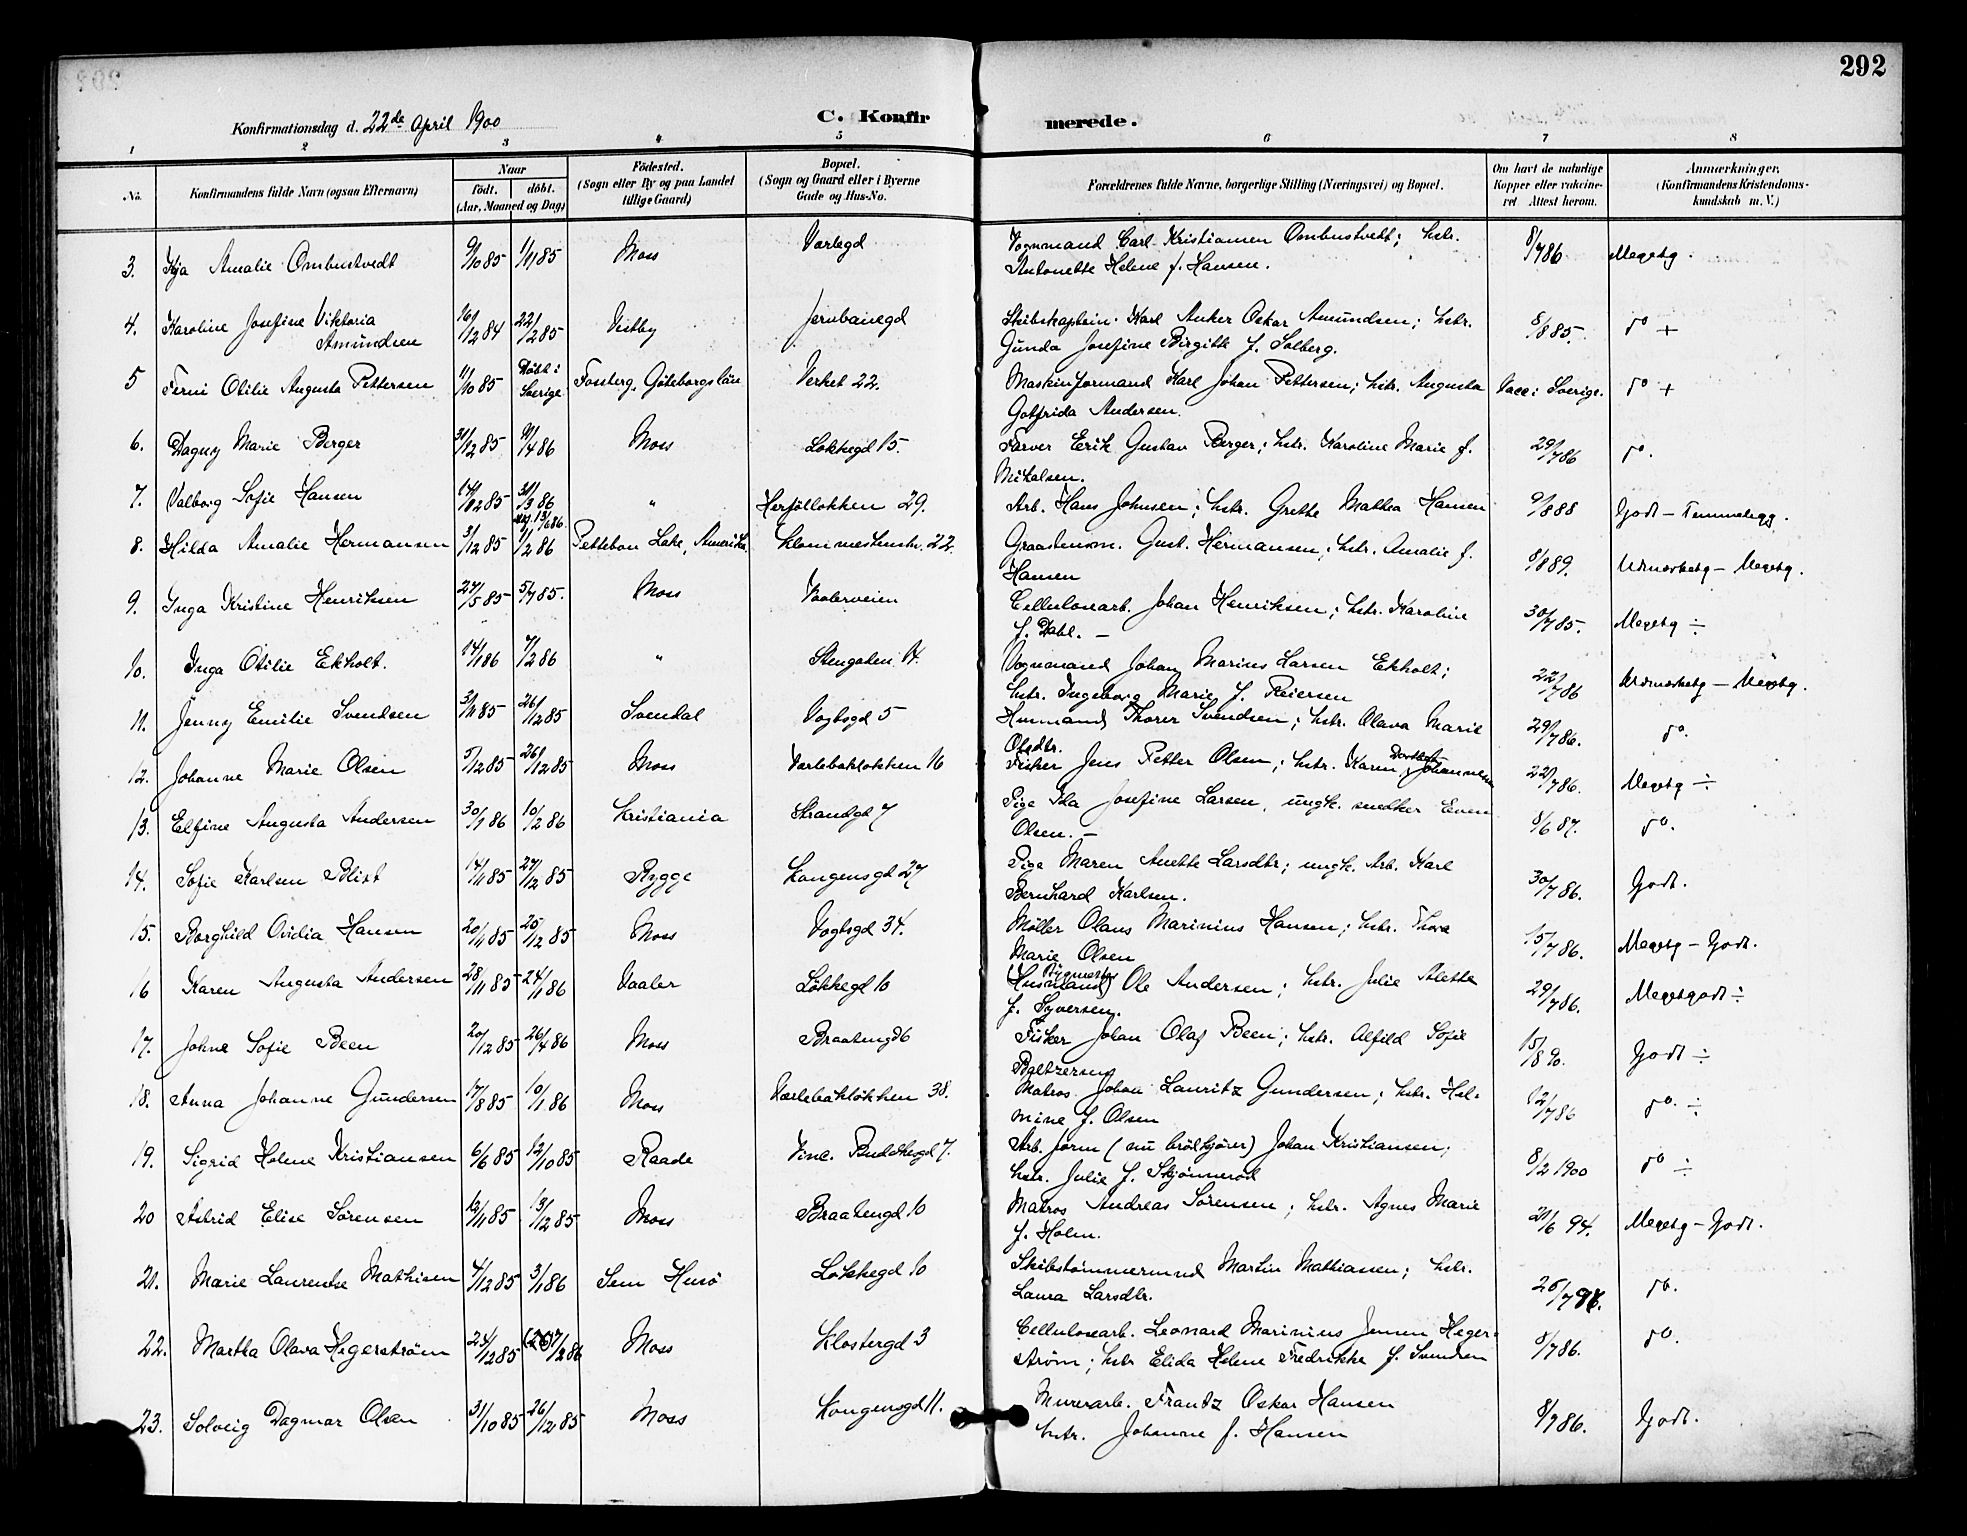 292
Konfirmationsdag d. 22de April 1900
C. Konfirmerede.
1 2 3 4 5 6 7 8
No. Konfirmandens fulde Navn (ogsaa Efternavn) Naar født. døbt. (Aar, Maaned og Dag) Fødested. (Sogn eller By og paa Landet tillige Gaard) Bopæl. (Sogn og Gaard eller i Byerne Gade og Hus-No. Forældrenes fulde Navne, borgerlige Stilling (Næringsvei) og Bopæl. Om havt de naturlige Kopper eller vakcineret Attest herom. Anmærkninger, (Konfirmandens Kristendomskundskab m. V.)
3. Kja Amalie Ombustvedt 9/10 85 1/11 85 Moss Varlegd Vognmand Carl Kristiansen Ombustvedt; hstr. 8/7 86 Megetg.
Antonette Helene f. Hansen.
4. Karoline Josefine Viktoria 16/12 84 22/2 85 Vestby Jernbanegd Skibskaptein Karl Anker Oskar Amundsen; hstr. 8/8 85. do +
Amundsen Gunda Josefine Birgitte f. Solberg.
5 Ferni Otilie Augusta Pettersen 11/10 85 Døbt i Sverige Fossberg, Göteborgslän Verket 22. Maskinformand Karl Johan Pettersen; hstr. Augusta Vacc. i Sverige. do +
Gotfrida Andersen.
6. Dagny Marie Berger 31/12 85 9/4 86 Moss Løkkegd 15. Farver Erik Gustav Berger; hstr. Karoline Marie f. 29/7 86 do.
Mikalsen.
7. Valborg Sofie Hansen 14/12 85 31/3 86 " Herføllokken 29. Arb. Hans Johnsen; hstr. Grethe Mathea Hansen 9/8 88 Godt - Temmeligg.
8. Hilda Amalie Hermansen 3/12 85 1/2 86 Pettebon Lake, Amerika Klommestenstr. 22. Graastensm. Gust. Hermansen; hstr. Amalie f. 8/8 89. Udmærketg - Megetg.
Hansen
9. Inga Kristine Henriksen 27/5 85 5/7 85. Moss Vaalerveien Cellulosearb. Johan Henriksen; hstr. Karoline 30/7 85. Megetg ÷
f. Dahl. -
10. Inga Otilie Ekholt. 14/1 86 7/2 86 " Stengaten 14. Vognmand Johan Marius Larsen Ekholt; 22/7 86 Udmærketg - Megetg.
hstr. Ingeborg Marie f. Reiersen
11. Jenny Emilie Svendsen 3/11 85 26/12 85 Svendal Vogtsgd 5 Husmand Thorer Svendsen; hstr. Olava Marie 29/7 86. do.
Olsdtr.
12. Johanne Marie Olsen 5/12 85 26/12 85 Moss Varlebakløkken 16 Fisker Jens Petter Olsen; hstr. Karen Dorthea Johannesen 22/7 86. Megetg ÷
13. Elfine Augusta Andersen 30/1 86 10/2 86 Kristiania Strandgd 7 Pige Ida Josefine Larsen, ungk. snedker Even 8/6 87. do.
Olsen. -
14. Sofie Karlsen Blixt 14/11 85 27/12 85 Rygge Kongensgd 27 Pige Maren Anette Larsdtr; ungk. Arb. Karl 30/7 86. Godt.
Bernhard Karlsen.
15. Borghild Ovidia Hansen 20/11 85 25/12 85 Moss Vogtsgd 34. Møller Olaus Marinius Hansen; hstr. Thora 15/7 86. Megetg - Godt.
Marie Olsen
16 Karen Augusta Andersen 28/11 85 24/1 86 Vaaler Løkkegd 10 (Husmand) Ole Andersen; hstr. Julie Alette 29/7 86. Megetgodt ÷
f. Syversen.
17. Johne Sofie Been 20/12 85 26/4 86 Moss Braatengd 6 Fisker Johan Olaf Been; hstr. Alfild Sofie 15/8 90. Godt ÷
Baltzersen
18. Anna Johanne Gundersen 17/8 85 10/1 86 Moss Varlebakløkken 38. Matros Johan Lauritz Gundersen; hstr. Hel- 12/7 86 do. ÷
mine f. Olsen
19. Sigrid Helene Kristiansen 6/6 85 12/10 85 Raade Vinc. Buddesgd 7. Arb. form (nu brølkjører) Johan Kristiansen; 8/2 1900 do ÷
hstr. Julie f. Skjønnerød
20 Astrid Elise Sørensen 12/11 85 13/12 85 Moss Braatengd 10 Matros Andreas Sørensen; hstr. Agnes Marie 21/6 94. Megetg - Godt.
f. Holm.
21. Marie Laurentse Mathisen 4/12 85 3/1 86 Sem Husø Løkkegd 10 Skibstømmermnd Martin Mathiassen; hstr. 26/7 98. do.
Laura Larsdtr.
22. Martha Olava Hegerstrøm 24/12 85 7/2 86 Moss Klostergd 3 Cellulosearb. Leonard Marinius Jensen Heger- 8/7 86. do.
strøm; hstr Elida Helene Fredrikke f. Svendsen
23. Solveig Dagmar Olsen 31/10 85 26/12 85 Moss Kongensgd 11. Murerarb. Frantz Oskar Hansen 8/7 86. Godt.
hstr. Johanne f. Hansen